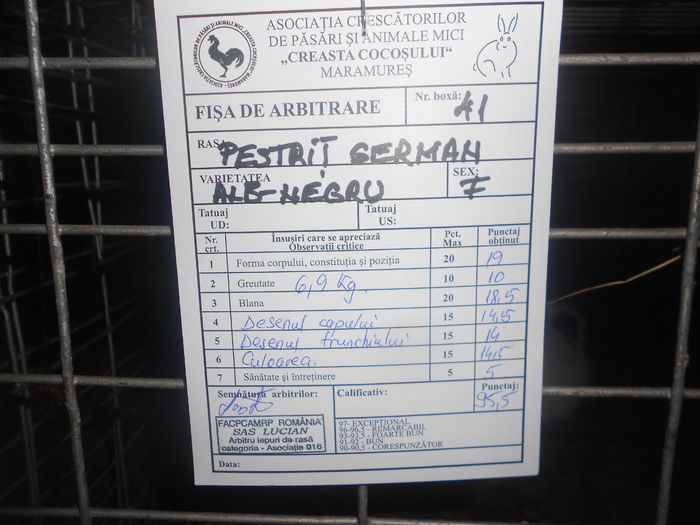 ASOCIAȚIA CRESCĂTORILOR
DE PĂSĂRI ȘI ANIMALE MICI
„CREASTA COCOȘULUI“
MARAMUREȘ
FIȘA DE ARBITRARE
Nr. boxă: 41
RASA PESTRIȚ GERMAN
VARIETATEA ALB-NEGRU
SEX: F
Tatuaj UD:
Tatuaj US:
Nr. crt. Însușiri care se apreciază Observații critice Pct. Max Punctaj obținut
1 Forma corpului, constituția și poziția 20 19
2 Greutate 6,9 kg. 10 10
3 Blana 20 18,5
4 Desenul capului 15 14,5
5 Desenul trunchiului 15 14
6 Culoarea. 15 14,5
7 Sănătate și întreținere 5 5
Semnătură arbitrilor:
Calificativ:
Punctaj: 95,5
FACPCAMRP ROMÂNIA
SAS LUCIAN
Arbitru iepuri de rasă
categoria - Asociație 016
97- EXCEPȚIONAL
96-96,5 - REMARCABIL
93-93,5 - FOARTE BUN
91-92 - BUN
90-90,5 - CORESPUNZĂTOR
Data: